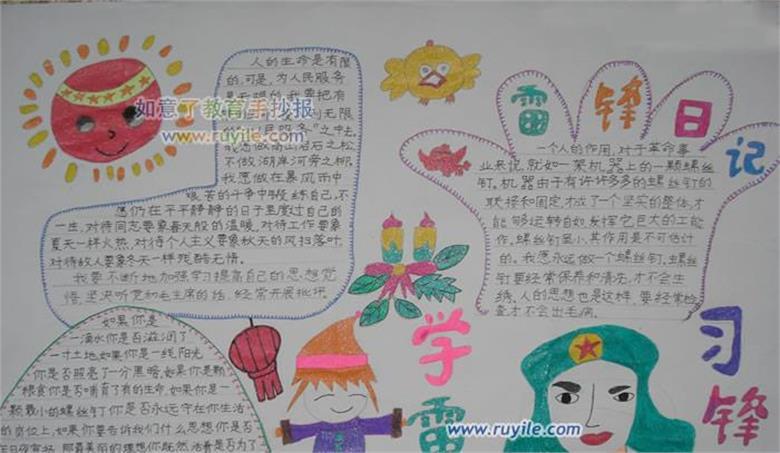 人的生命是有限
的,可是,为人民服务
是无限的,我要把有
民服务"之中去
我愿做高山岩石之松
不做湖岸河旁之柳
我愿做在暴风雨中
艰苦的斗争中锻练自己,不
愿仍在平平静静的日子里度过自己的
一生,对待同志要象春天般的温暖,对待工作要象
夏天一样火热,对待个人主义要象秋天的风扫落叶,
对待敌人要象冬天一样残酷无情。
我要不断地加强学习提高自己的思想觉
悟,坚决听党和毛主席的话,经常开展批评。
如意了教育手抄报
www.ruyile.com
雷锋日记
一个人的作用,对于革命事
业来说,就如一架机器上的一颗螺丝
钉。机器由于有许许多多的螺丝钉的
联接和固定才成了一个坚实的整体,才
能够运转自如,发挥它巨大的工能
作。螺丝钉虽小,其作用是不可估计
的。我愿永远做一个螺丝钉,螺丝
钉要经常保养和清洗,才不会生
锈。人的思想也是这样,要经常检
查才不会出毛病。
如果你是
一滴水你是否滋润了
一寸土地如果你是一线阳光
你是否照亮了一分黑暗,如果你是颗
粮食你是否哺育了有的生命,如果你是一
颗最小的螺丝钉你是否永远守在你生活
的岗位上,如果你要告诉我们什么思想你是否
那最美丽的理想你既然活着是否为了
学雷
习锋
www.ruyile.com